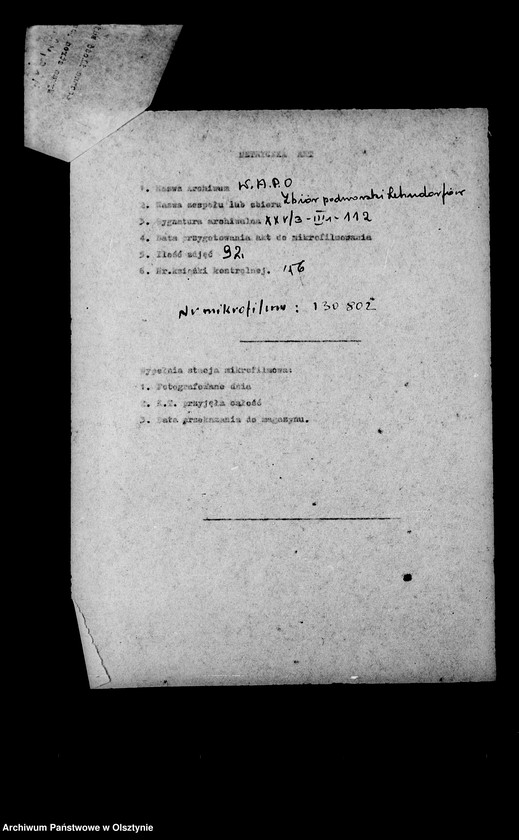 METRYCZKA AKT
1. Nazwa archiwum W.A.P.O
2. Nazwa zespołu lub zbioru Zbiór podworski Lehndorfów
3. Sygnatura archiwalna XXV/3-III1-112
4. Data przygotowania akt do mikrofilmowania
5. Ilość zdjęć 92.
6. Nr.książki kontrolnej.
Nr mikrofilmu : 130 802
Wypełnia stacja mikrofilmowa:
1. Fotografowano dnia
2. K.T. przyjęła całość
3. Data przekazania do magazynu.
Archiwum Państwowe w Olsztynie